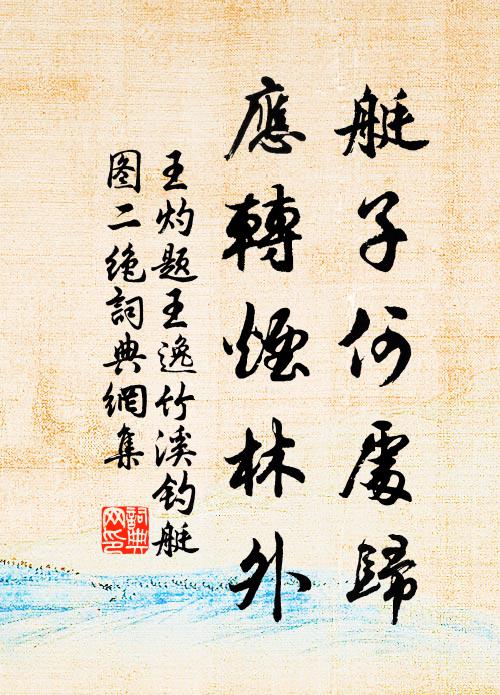 艇子何處歸
應轉煙林外
王灼题王逸竹溪钓艇
图二绝詞典網集
詞典网印